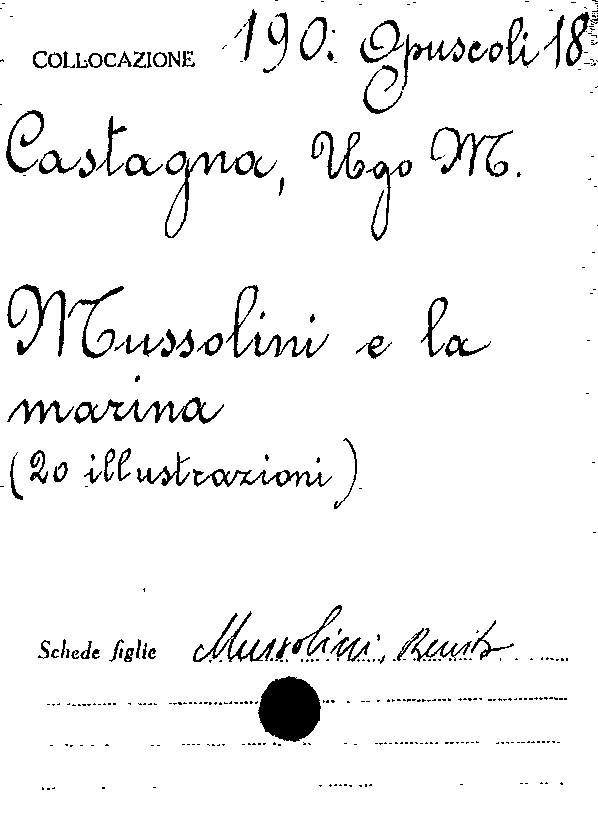 COLLOCAZIONE 190. Opuscoli 18
Castagna, Ugo M.
Mussolini e la
marina
(20 illustrazioni)
Schede figlie Mussolini, Benito